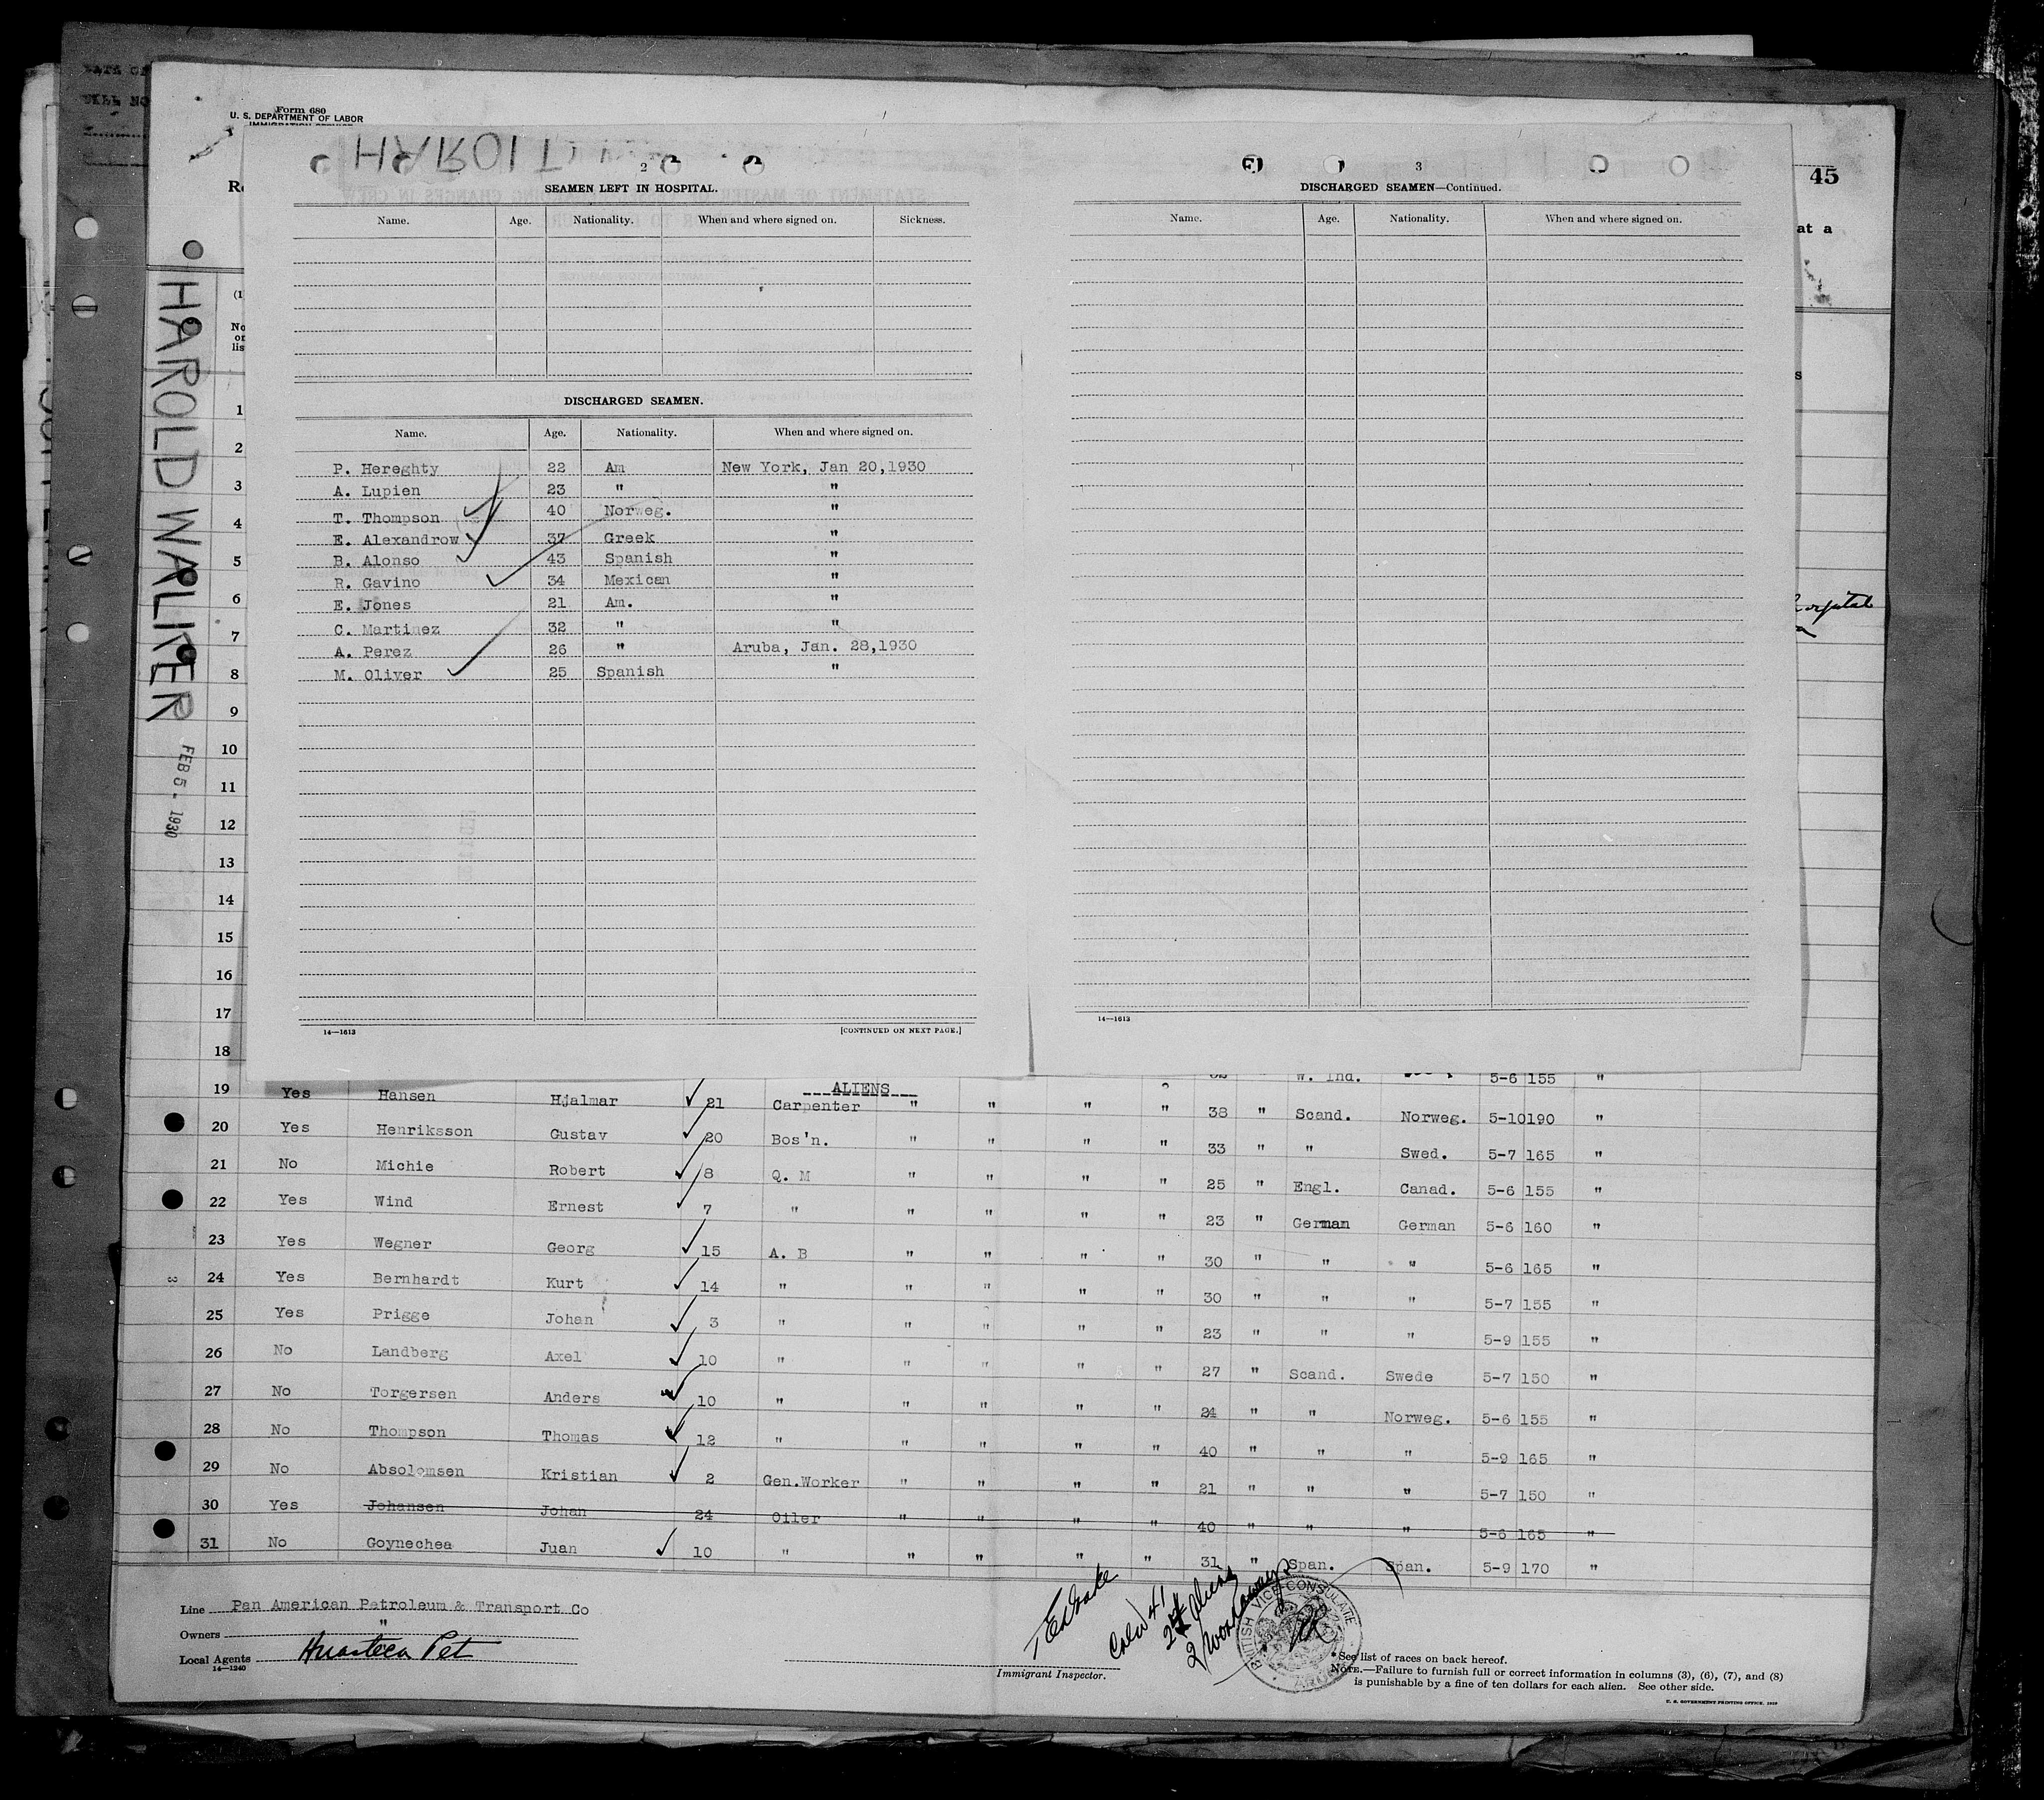 Form 680
U. S. DEPARTMENT OF LABOR
IMMIGRATION SERVICE
45
at a
HAROLD WALKER
FEB 5 - 1930
2
SEAMEN LEFT IN HOSPITAL.
Name. Age. Nationality. When and where signed on. Sickness.
DISCHARGED SEAMEN.
Name. Age. Nationality. When and where signed on.
P. Hereghty 22 Am New York, Jan 20,1930
A. Lupien 23 " "
T. Thompson 40 Norweg. "
E. Alexandrow 37 Greek "
B. Alonso 43 Spanish "
R. Gavino 34 Mexican "
E. Jones 21 Am. "
C. Martinez 32 " "
A. Perez 26 " Aruba, Jan. 28,1930
M. Oliver 25 Spanish "
14—1613 [CONTINUED ON NEXT PAGE.]
3
DISCHARGED SEAMEN—Continued.
Name. Age. Nationality. When and where signed on.
14—1613
1
2
3
4
5
6
7
8
9
10
11
12
13
14
15
16
17
18
W. Ind. 5-6 155 "
ALIENS
19 Yes Hansen Hjalmar 21 Carpenter " " " " 38 " Scand. Norweg. 5-10 190 "
20 Yes Henriksson Gustav 20 Bos'n. " " " " 33 " " Swed. 5-7 165 "
21 No Michie Robert 8 Q. M " " " " 25 " Engl. Canad. 5-6 155 "
22 Yes Wind Ernest 7 " " " " " 23 " German German 5-6 160 "
23 Yes Wegner Georg 15 A. B " " " " 30 " " " 5-6 165 "
24 Yes Bernhardt Kurt 14 " " " " " 30 " " " 5-7 155 "
25 Yes Prigge Johan 3 " " " " " 23 " " " 5-9 155 "
26 No Landberg Axel 10 " " " " " 27 " Scand. Swede 5-7 150 "
27 No Torgersen Anders 10 " " " " " 24 " " Norweg. 5-6 155 "
28 No Thompson Thomas 12 " " " " " 40 " " " 5-9 165 "
29 No Absolomsen Kristian 2 Gen.Worker " " " " 21 " " " 5-7 150 "
30 Yes Johansen Johan 24 Oiler " " " " 40 " " " 5-6 165 "
31 No Goynechea Juan 10 " " " " " 31 " Span. Span. 5-9 170 "
Line Pan American Petroleum & Transport Co
Owners "
Local Agents Huasteca Pet
14—1240
Crew 41
2 workaways
Immigrant Inspector.
BRITISH VICE-CONSULATE
* See list of races on back hereof.
NOTE.—Failure to furnish full or correct information in columns (3), (6), (7), and (8)
is punishable by a fine of ten dollars for each alien. See other side.
U. S. GOVERNMENT PRINTING OFFICE. 1929